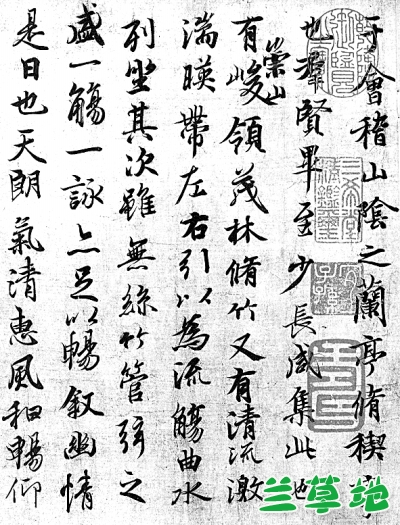 于會稽山陰之蘭亭脩稧事
也羣賢畢至少長咸集此地
有崇山峻領茂林脩竹又有清流激
湍暎帶左右引以為流觴曲水
列坐其次雖無絲竹管弦之
盛一觴一詠亦足以暢敘幽情
是日也天朗氣清惠風和暢仰
兰草地